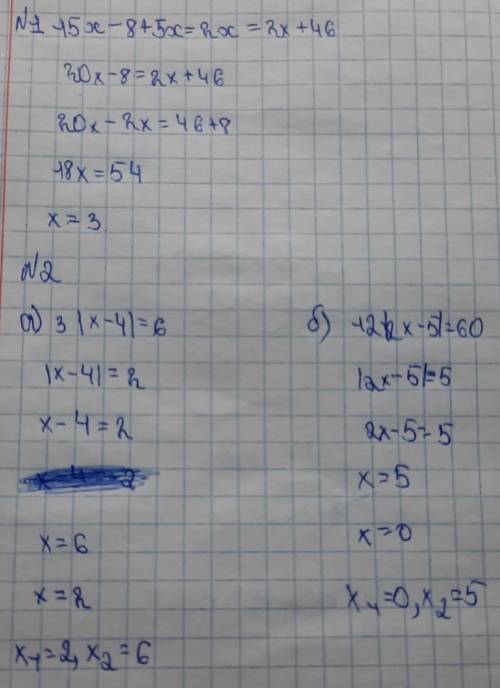 №1 15x-8+5x=2x=2x+46
20x-8=2x+46
20x-2x=46+8
18x=54
x=3
№2
а) 3|x-4|=6
|x-4|=2
x-4=2
x=6
x=2
x₁=2, x₂=6
б) 12|2x-5|=60
|2x-5|=5
2x-5=5
x=5
x=0
x₁=0, x₂=5